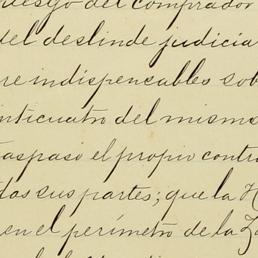 riesgo del comprador
del deslinde judicia
re indispensables sob
nticuatro del mismo
raspaso el propio contr
das sus partes; que la H
en el perímetro de la Za